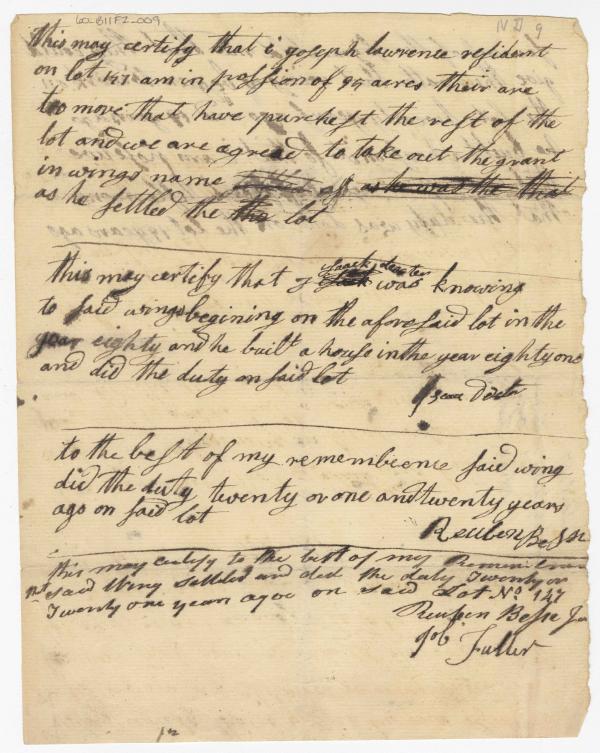 60-B11F2-009
ND 9
this may certify that i Joseph lawrence resident
on lot 147 am in possion of 95 acres their are
too move that have purchest the rest of the
lot and we are agread to take out the grant
in wings name of as he was the that
as he settled the the lot
this may certify that I isaack dexter was knowing
to said wings begining on the aforesaid lot in the
year eighty and he built a house in the year eighty one
and did the duty on said lot
Isaac
to the best of my remembrence said wing
did the duty twenty or one and twenty years
ago on said lot
Reuben Besse
this may certify to the best of my Remembrance
that said Wing settled and did the duty Twenty or
Twenty one years agoe on said Lot No 147
Reuben Besse Jr
Job Fuller